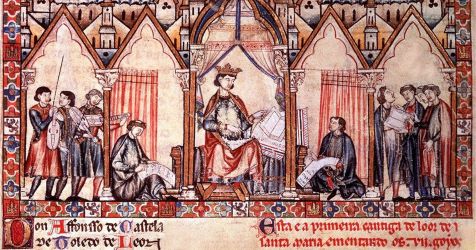 Don Affonsso de Castela
de Toledo de Leon
Esta e a primeira cantiga de loor de
santa maria ementando os .vij. goyos